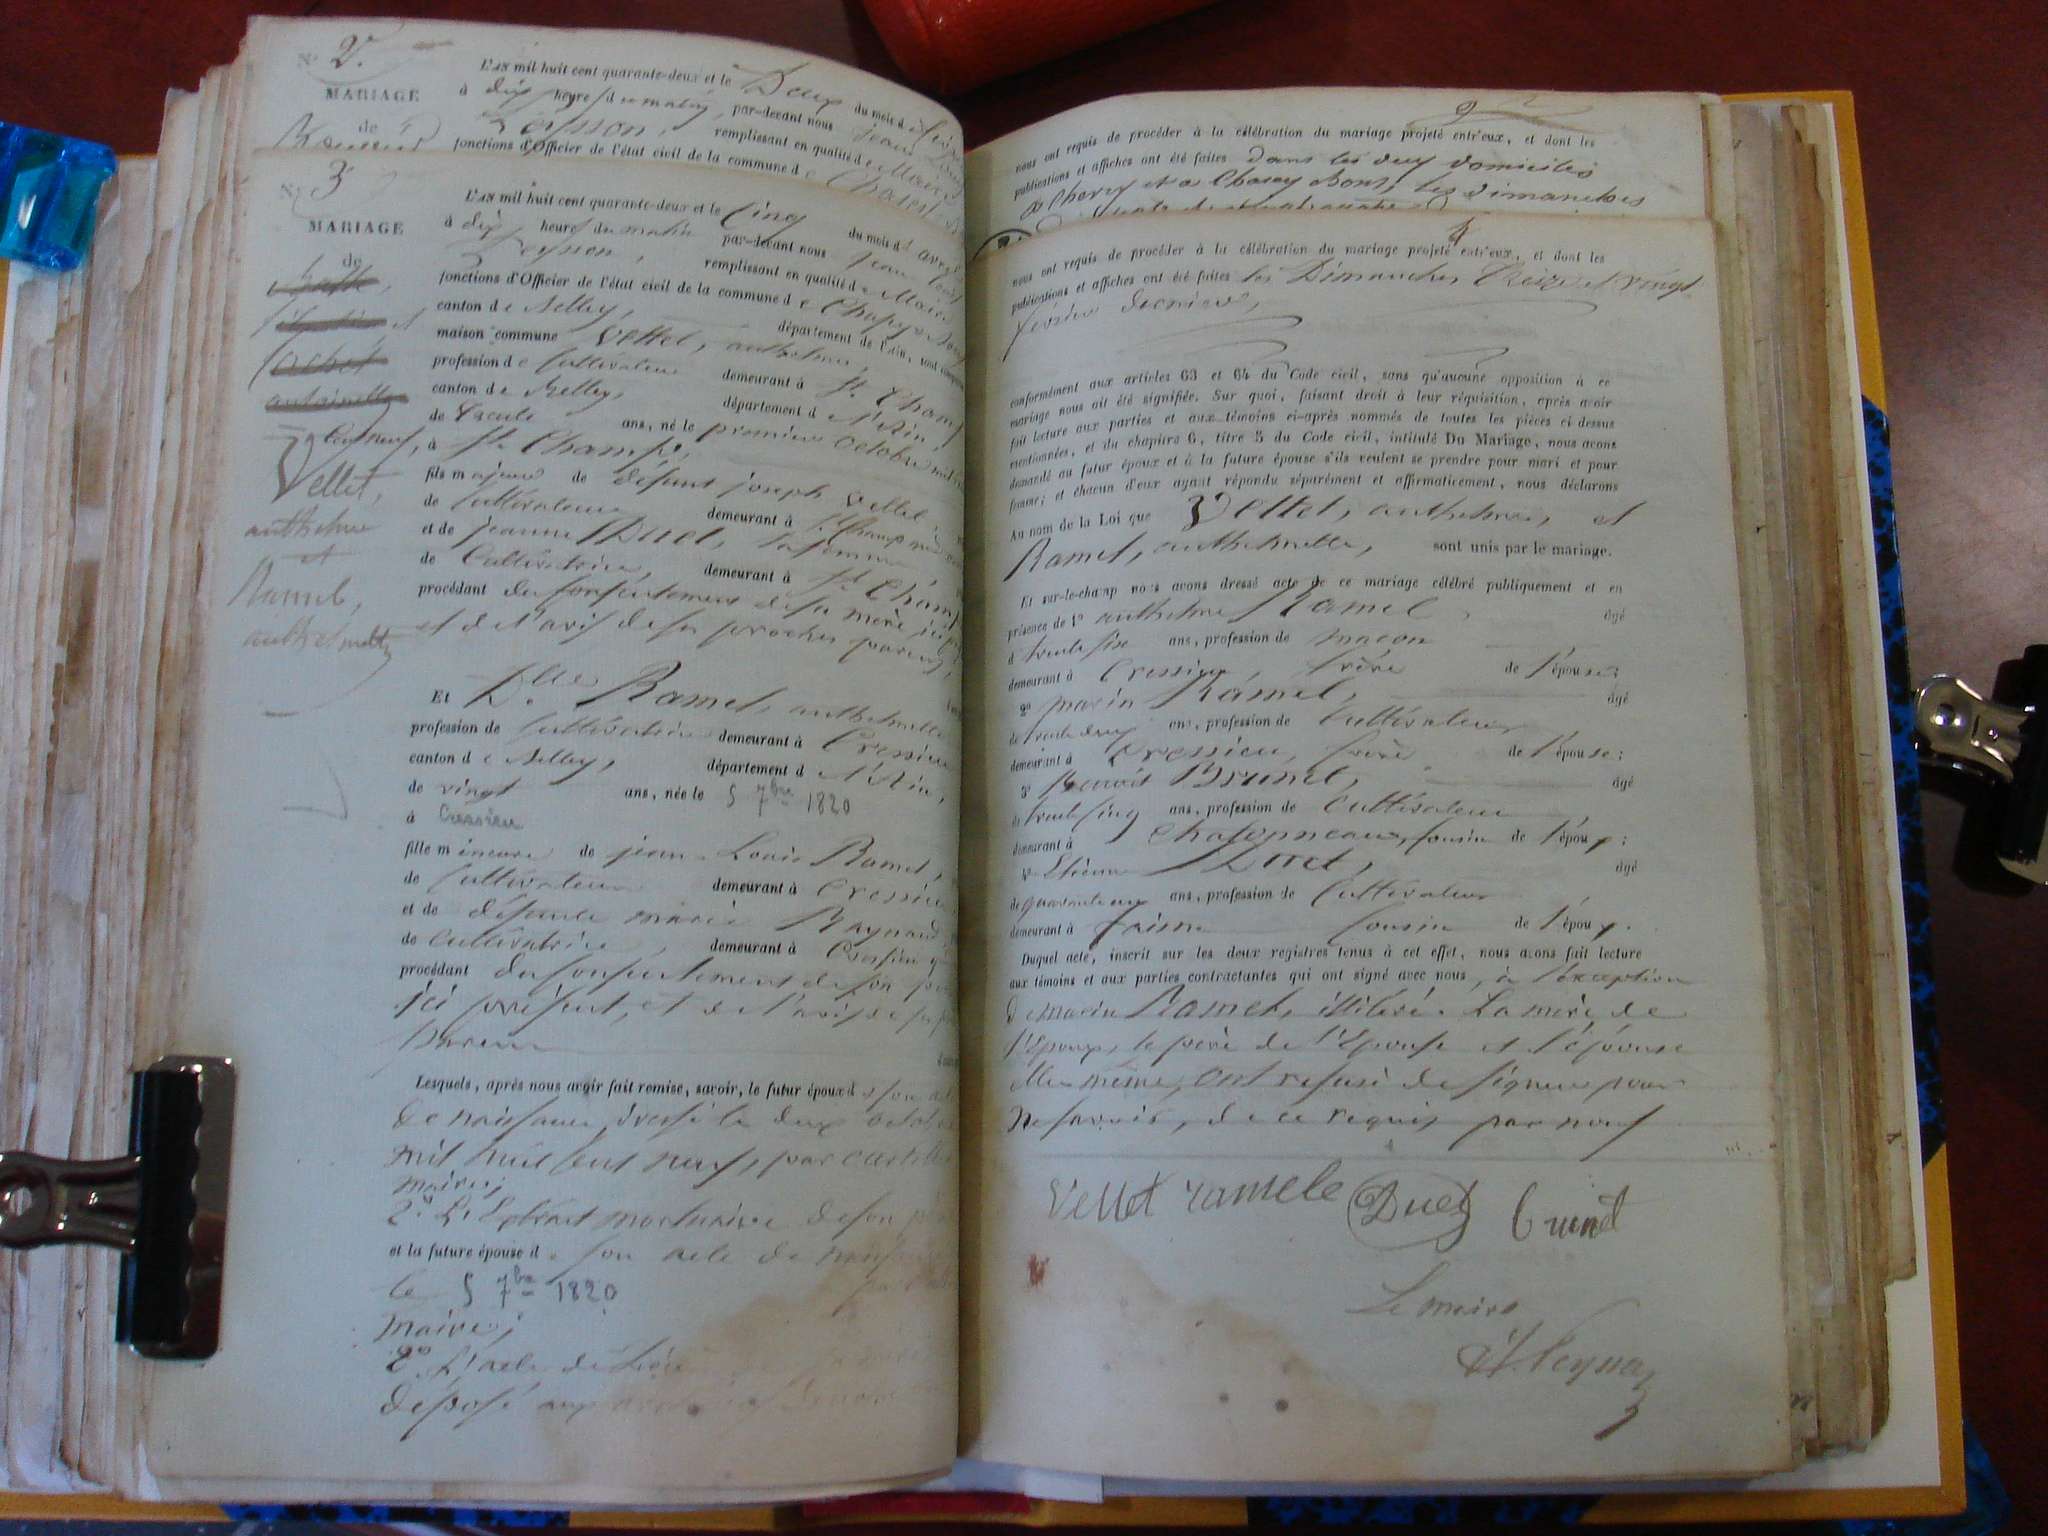 N° 2.
MARIAGE
de
L'AN mil huit cent quarante-deux et le Deux du mois d
à dix heures du matin, par-devant nous jean Louis
Peysson, remplissant en qualité de Maire
fonctions d'Officier de l'état civil de la commune de
N° 3
MARIAGE
de
et
antoinette
Vellet,
anthelme
et
Ramel,
anthelmette
L'AN mil huit cent quarante-deux et le Cinq du mois d'avril
à dix heures du matin par-devant nous jean Louis
Peysson, remplissant en qualité de Maire
fonctions d'Officier de l'état civil de la commune de Chazey-Bons
canton de Belley, département de l'Ain, sont comparus
maison commune Vettet, anthelme,
profession de Cultivateur demeurant à St. Champ
canton de Belley, département de l'Ain,
de trente ans, né le premier octobre mil
à St. Champ,
fils majeur de défunt joseph Vettet
de Cultivateur demeurant à St. Champ
et de jeanne Duet, sa femme
de Cultivatrice, demeurant à St. Champ
procédant du consentement de sa mère ici
et de l'avis de ses proches parens,
Et Dlle Ramel, anthelmette
profession de Cultivatrice demeurant à Cressieu
canton de Belley, département de l'Ain,
de vingt ans, née le 5 7bre 1820
à Cressieu
fille mineure de jean-Louis Ramel,
de Cultivateur demeurant à Cressieu
et de défunte marie Raynaud
de Cultivatrice, demeurant à Cressieu
procédant du consentement de son père
ici présent, et de l'avis de ses
Parens
Lesquels, après nous avoir fait remise, savoir, le futur époux de son acte
de naissance, dressé le deux octobre
mil huit cent neuf, par
maire;
2° L'Extrait mortuaire de son père
et la future épouse de son acte de naissance
le 5 7bre 1820
maire;
2° L'acte de
déposé aux
nous ont requis de procéder à la célébration du mariage projeté entr'eux, et dont les
publications et affiches ont été faites dans les deux domiciles
à Chazey Bons, les dimanches
nous ont requis de procéder à la célébration du mariage projeté entr'eux, et dont les
publications et affiches ont été faites les Dimanches Treize et vingt
février dernier,
conformément aux articles 63 et 64 du Code civil, sans qu'aucune opposition à ce
mariage nous ait été signifiée. Sur quoi, faisant droit à leur réquisition, après avoir
fait lecture aux parties et aux témoins ci-après nommés de toutes les pièces ci-dessus
mentionnées, et du chapitre 6, titre 5 du Code civil, intitulé Du Mariage, nous avons
demandé au futur époux et à la future épouse s'ils veulent se prendre pour mari et pour
femme; et chacun d'eux ayant répondu séparément et affirmativement, nous déclarons
Au nom de la Loi que Vettet, anthelme, et
Ramel, anthelmette, sont unis par le mariage.
Et sur-le-champ nous avons dressé acte de ce mariage célébré publiquement et en
présence de 1° anthelme Ramel, âgé
de trente six ans, profession de maçon
demeurant à Cressieu, frère de l'épouse;
2° marin Ramel, âgé
de trente deux ans, profession de Cultivateur
demeurant à Cressieu, frère de l'épouse;
3° Benoit Brunet, âgé
de trente cinq ans, profession de Cultivateur
demeurant à Chafonneaux, cousin de l'époux;
4° Etienne Duet, âgé
de quarante un ans, profession de Cultivateur
demeurant à cousin de l'époux.
Duquel acte, inscrit sur les deux registres tenus à cet effet, nous avons fait lecture
aux témoins et aux parties contractantes qui ont signé avec nous, à l'exception
de marin Ramel, illitéré. La mère de
l'Epoux, le père de l'Epouse et l'épouse
elle même, ont refusé de signer pour
ne savoir, de ce requis par nous
Vellet ramele Duet brunet
Le maire